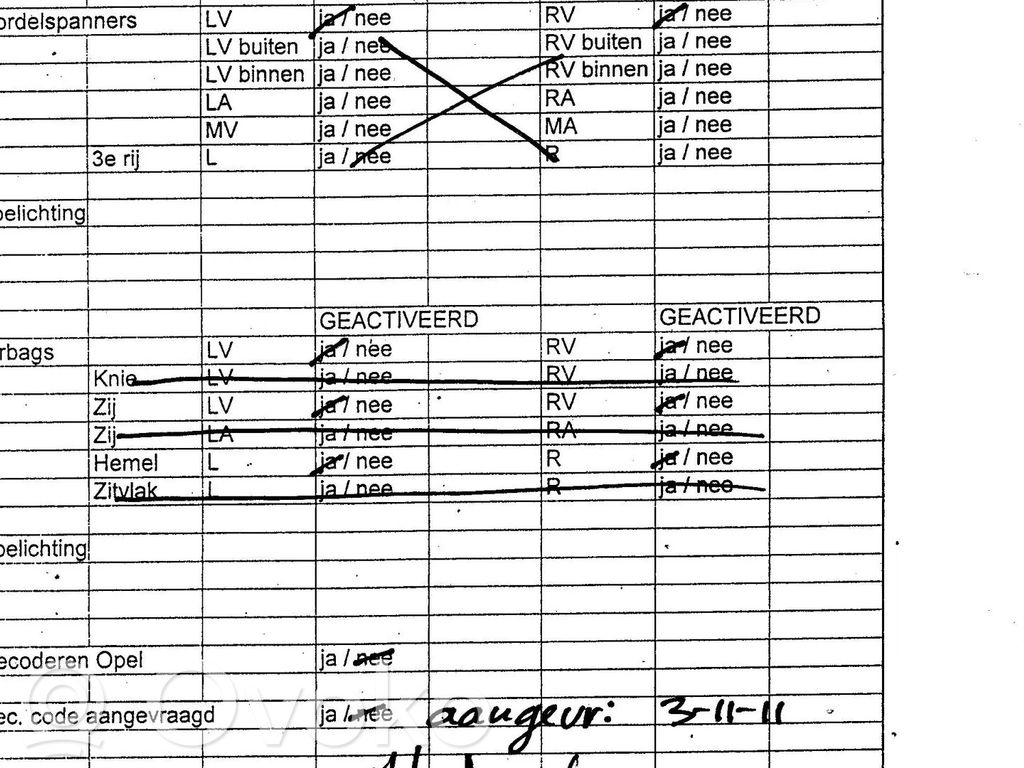 ordelspanners LV ja / nee RV ja / nee
LV buiten ja / nee RV buiten ja / nee
LV binnen ja / nee RV binnen ja / nee
LA ja / nee RA ja / nee
MV ja / nee MA ja / nee
3e rij L ja / nee R ja / nee
oelichting
GEACTIVEERD GEACTIVEERD
rbags LV ja / nee RV ja / nee
Knie LV ja / nee RV ja / nee
Zij LV ja / nee RV ja / nee
Zij LA ja / nee RA ja / nee
Hemel L ja / nee R ja / nee
Zitvlak L ja / nee R ja / nee
oelichting
ecoderen Opel ja / nee
ec. code aangevraagd ja / nee aangevr: 3-11-11
@ Ovoko